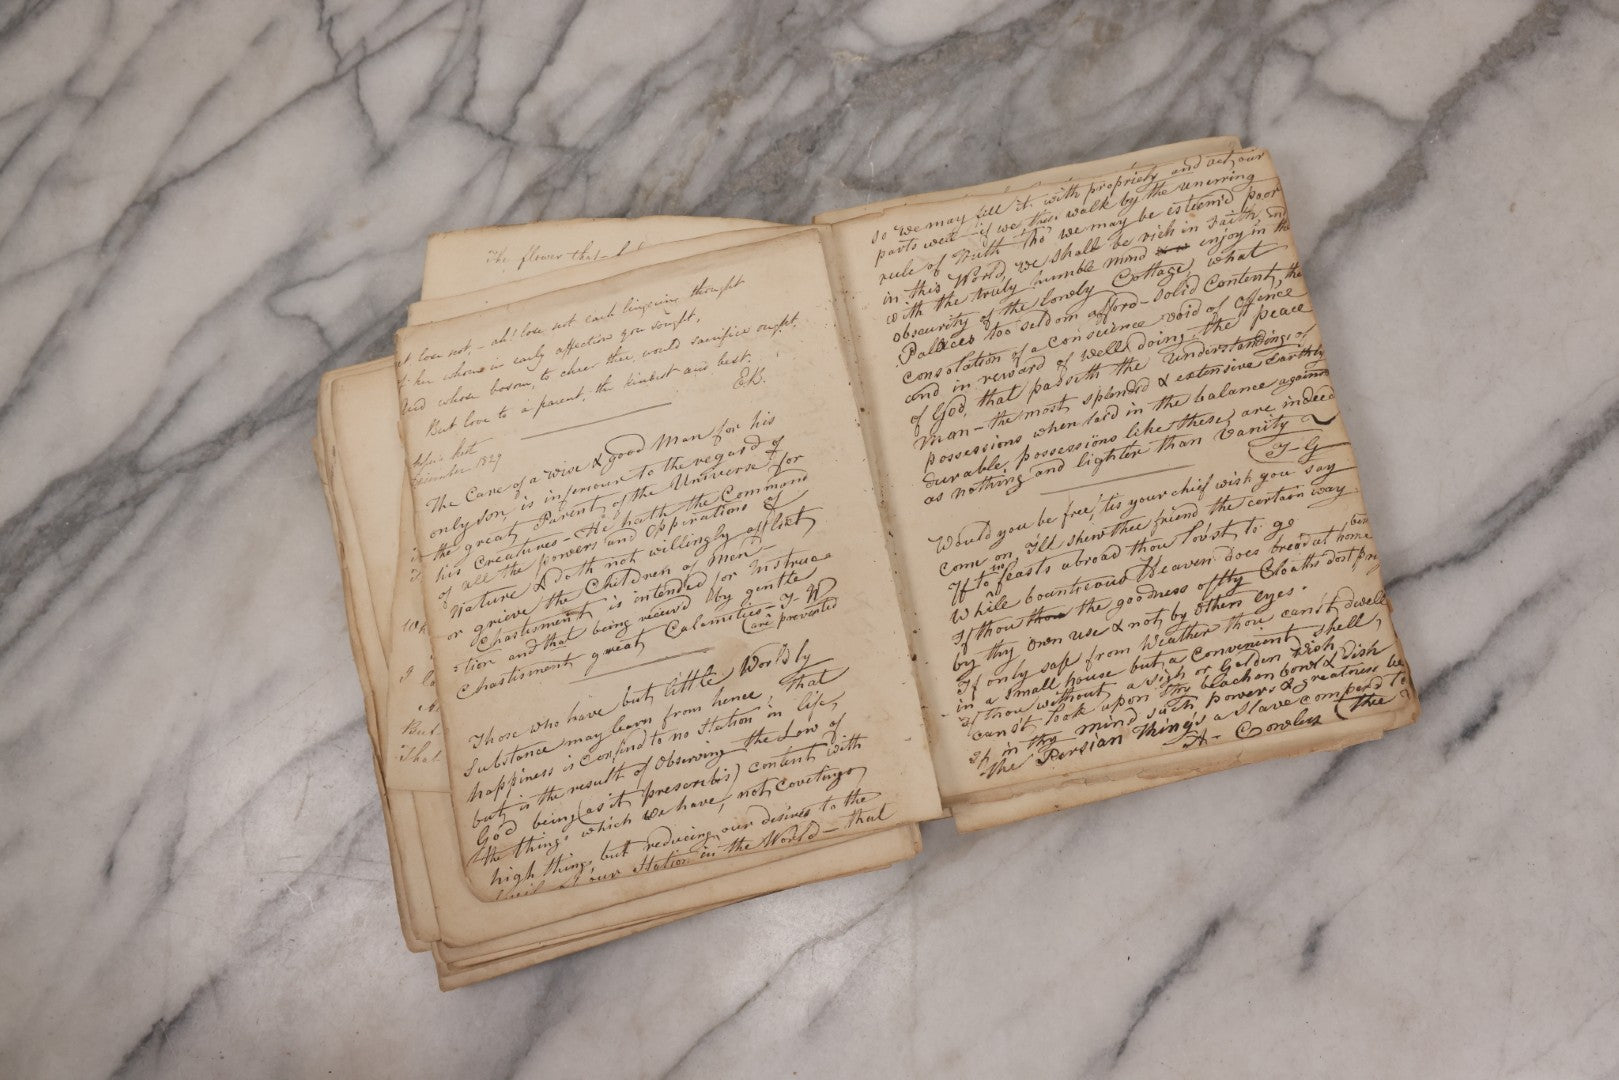 The flower that
love not, - ah! love not each lingering thought
her whom in early affection you sought,
And whose bosom, to cheer thee, would sacrifice ought,
But love to a parent, the kindest and best.
E.B.
1829
The Care of a wise & good Man for his
only son is inferiour to the regard of
the great Parent of the Universe for
his Creatures - He hath the Command
of all the powers and Opperations of
Nature & doth not willingly afflict
or grieve the Children of Men -
Chastisment is intended for Instruc=
=tion and that being receiv'd by gentle
Chastisment great Calamities - J. W
(are prevented
Those who have but little Worldly
Substance may learn from hence, that
happiness is confind to no Station in life,
but is the result of Observing the Law of
God being (as it prescribes) content with
the things which we have, not Coveting
high things but reducing our desires to the
our Station in the World - that
But
That
so we may fill it with propriety and act our
parts well - if we thus walk by the unerring
rule of Truth tho' we may be esteem'd poor
in this World, we shall be rich in Faith, and
with the truly humble mind enjoy in the
obscurity of the lonely Cottage, what
Pallaces too seldom afford - Solid Content, the
Consolation of a Conscience void of Offence
and in reward of well doing, the peace
of God, that passeth the Understandings of
Man - the most splendid & extensive Earthly
possessions when laid in the balance against
durable possessions like these, are indeed
as nothing and lighter than Vanity
J - G
Would you be free, 'tis your chief wish you say
Come on, I'll shew thee friend the certain way
If to feasts abroad thou lov'st to go
in
While bounteous Heaven does bread at home
If thou thou the goodness of thy Cloaths dost
by thy own use & not by others eyes.
If only safe from Weather thou can'st dwell
in a small house but a Convenient Shell,
If thou without a sigh or Golden wish
canst look upon thy beachen bowl & dish
If in thy mind such powers & greatness be
the Persian King's a Slave compar'd to
A - Cowley (thee